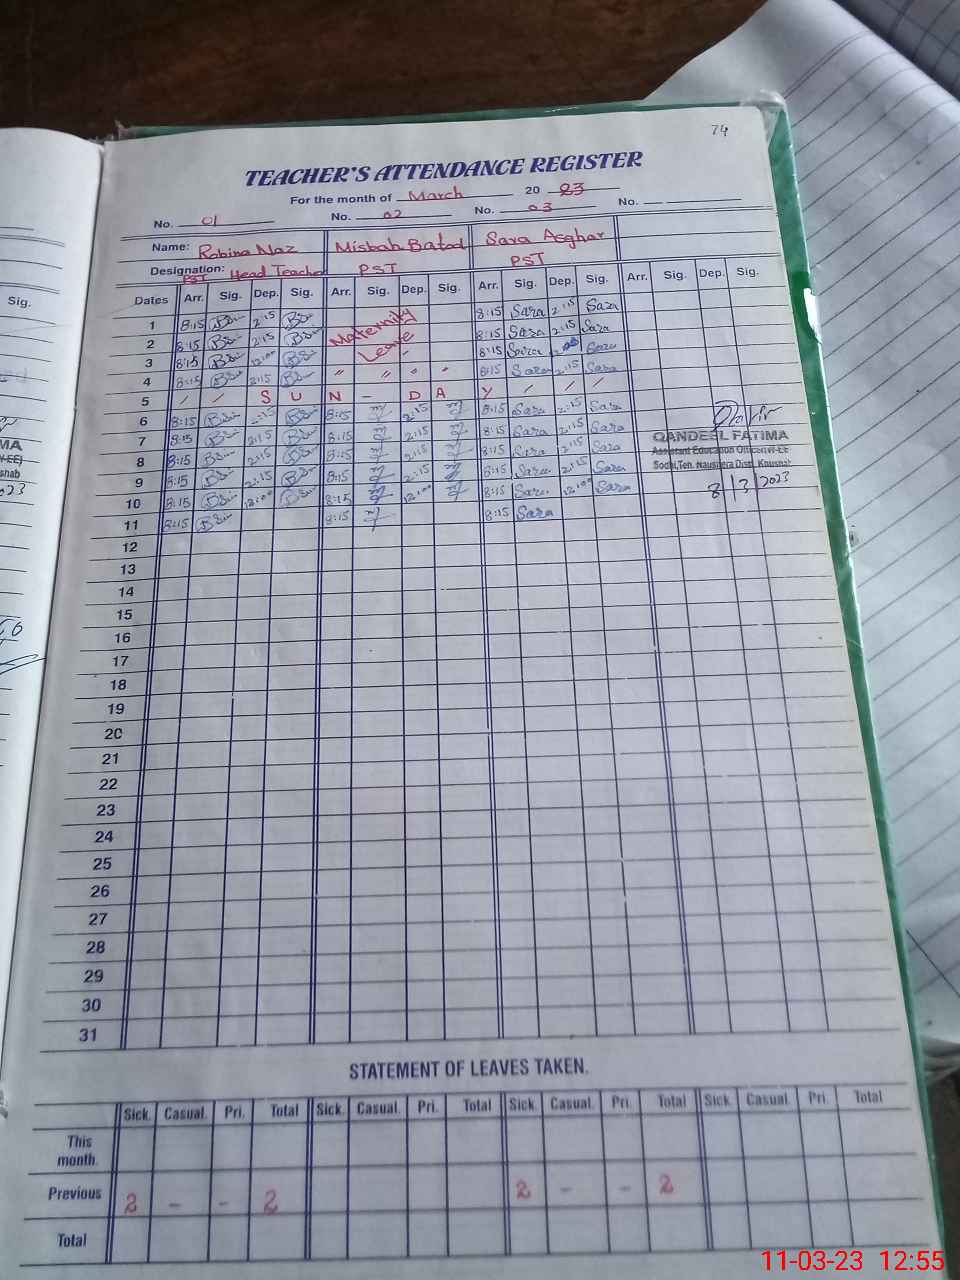 74
TEACHER'S ATTENDANCE REGISTER
For the month of March 20 23
No. 01 No. 02 No. 03 No.
Name: Robina Naz Misbah Batool Sara Asghar
Designation: PST Head Teacher PST PST
Dates Arr. Sig. Dep. Sig. Arr. Sig. Dep. Sig. Arr. Sig. Dep. Sig. Arr. Sig. Dep. Sig.
1 8:15 2:15 Maternity 8:15 Sara 2:15 Sara
2 8:15 2:15 Leave 8:15 Sara 2:15 Sara
3 8:15 12:00 8:15 Sara 12:00 Sara
4 8:15 2:15 " " " " 8:15 Sara 2:15 Sara
5 / / S U N - D A Y / / /
6 8:15 2:15 8:15 2:15 8:15 Sara 2:15 Sara
7 8:15 2:15 8:15 2:15 8:15 Sara 2:15 Sara
8 8:15 2:15 8:15 2:15 8:15 Sara 2:15 Sara
9 8:15 2:15 8:15 2:15 8:15 Sara 2:15 Sara
10 8:15 12:00 8:15 12:00 8:15 Sara 12:00 Sara
11 8:15 8:15 8:15 Sara
QANDEEL FATIMA
Assistant Education Officer(W-EE)
Sodhi, Teh. Naushera Distt. Khushab
8/3/2023
12
13
14
15
16
17
18
19
20
21
22
23
24
25
26
27
28
29
30
31
STATEMENT OF LEAVES TAKEN.
Sick. Casual. Pri. Total Sick. Casual. Pri. Total Sick. Casual. Pri. Total Sick. Casual. Pri. Total
This month.
Previous 2 - - 2 2 - - 2
Total
Sig.
11-03-23 12:55